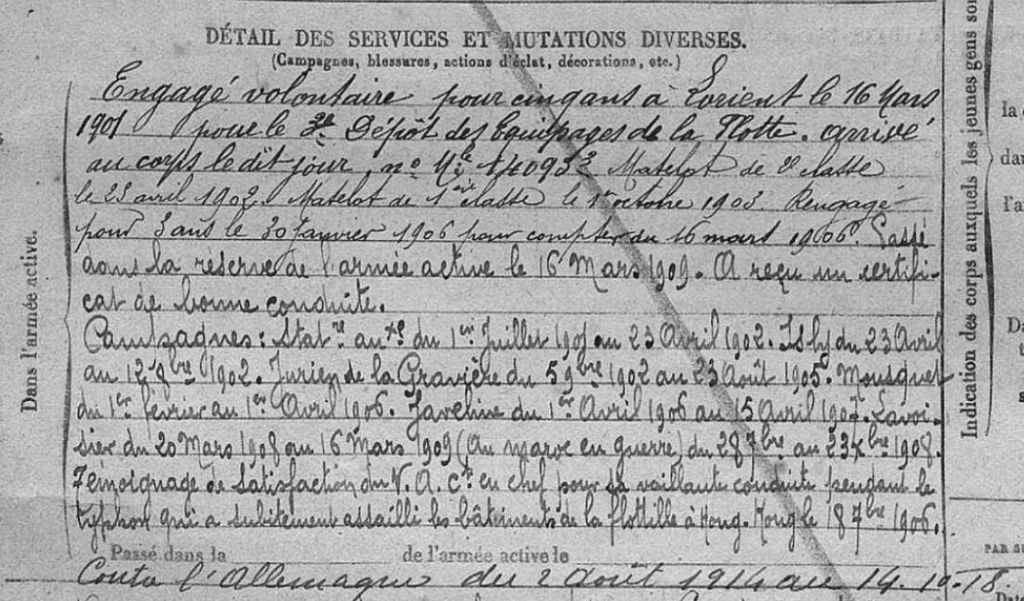 DÉTAIL DES SERVICES ET MUTATIONS DIVERSES.
(Campagnes, blessures, actions d'éclat, décorations, etc.)
Engagé volontaire pour cinq ans à Lorient le 16 Mars
1901 pour le 3e Dépôt des Equipages de la Flotte. arrivé
au corps le dit jour, no Mle 14093 3 Matelot de 2e classe
le 23 avril 1902. Matelot de 1ère classe le 1er octobre 1903. Rengagé
pour 3 ans le 30 janvier 1906 pour compter du 16 mars 1906. Passé
dans la réserve de l'armée active le 16 Mars 1909. A reçu un certifi-
cat de bonne conduite.
Campagnes: du 1er Juillet 1901 au 23 Avril 1902. du 23 Avril
au 12 8bre 1902. Jurien de la Gravière du 5 9bre 1902 au 23 Août 1905. Mousquet
du 1er février au 1er Avril 1906. Javeline du 1er Avril 1906 au 15 Avril 1907. Lavoi-
sier du 20 Mars 1908 au 16 Mars 1909 (Au maroc en guerre) du 28 7bre au 23 xbre 1908.
Témoignage de satisfaction du V. A. ct en chef pour sa vaillante conduite pendant le
typhon qui a subitement assailli les bâtiments de la flottille à Hong-Kong le 18 7bre 1906.
Passé dans la de l'armée active le
Contre l'Allemagne du 2 Août 1914 au
Dans l'armée active.
Indication des corps auxquels les jeunes gens
la
dan
l'a
PAR